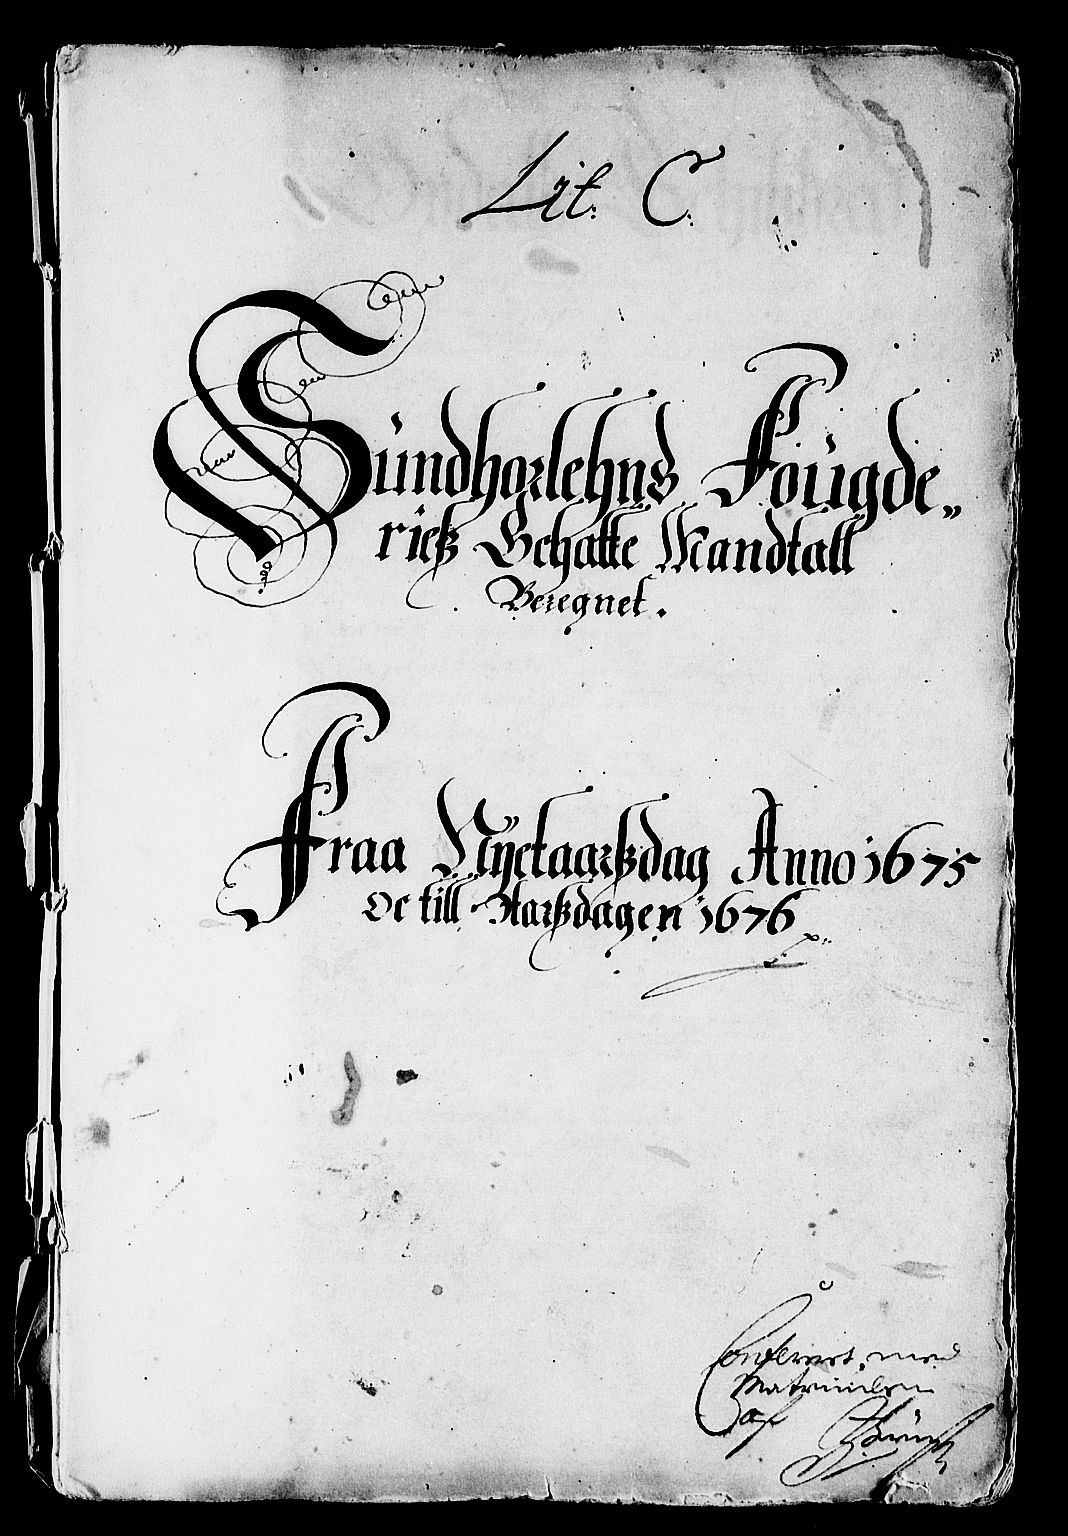 Lit: C.
Sündhorlehns Foügde„
rietz Schatte Mandtall
Beregnet.
Fraa Nyetaarszdag Anno 1675
Oc till Aarszdagen 1676
Confereret med
Matriculen
af